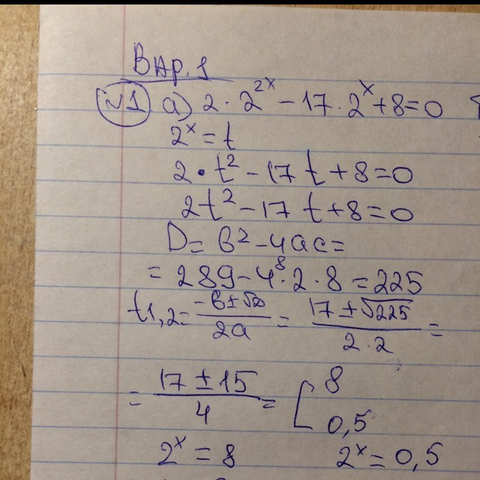 Вар. 1
№1 а) 2 · 2^{2x} − 17 · 2^x + 8 = 0
2^x = t
2 · t² − 17t + 8 = 0
2t² − 17t + 8 = 0
D = b² − 4ac =
= 289 − 4 · 2 · 8 = 225
t1,2 = (−b ± √D)/(2a) = (17 ± √225)/(2 · 2) =
= (17 ± 15)/4 = [ 8
0,5
2^x = 8    2^x = 0,5